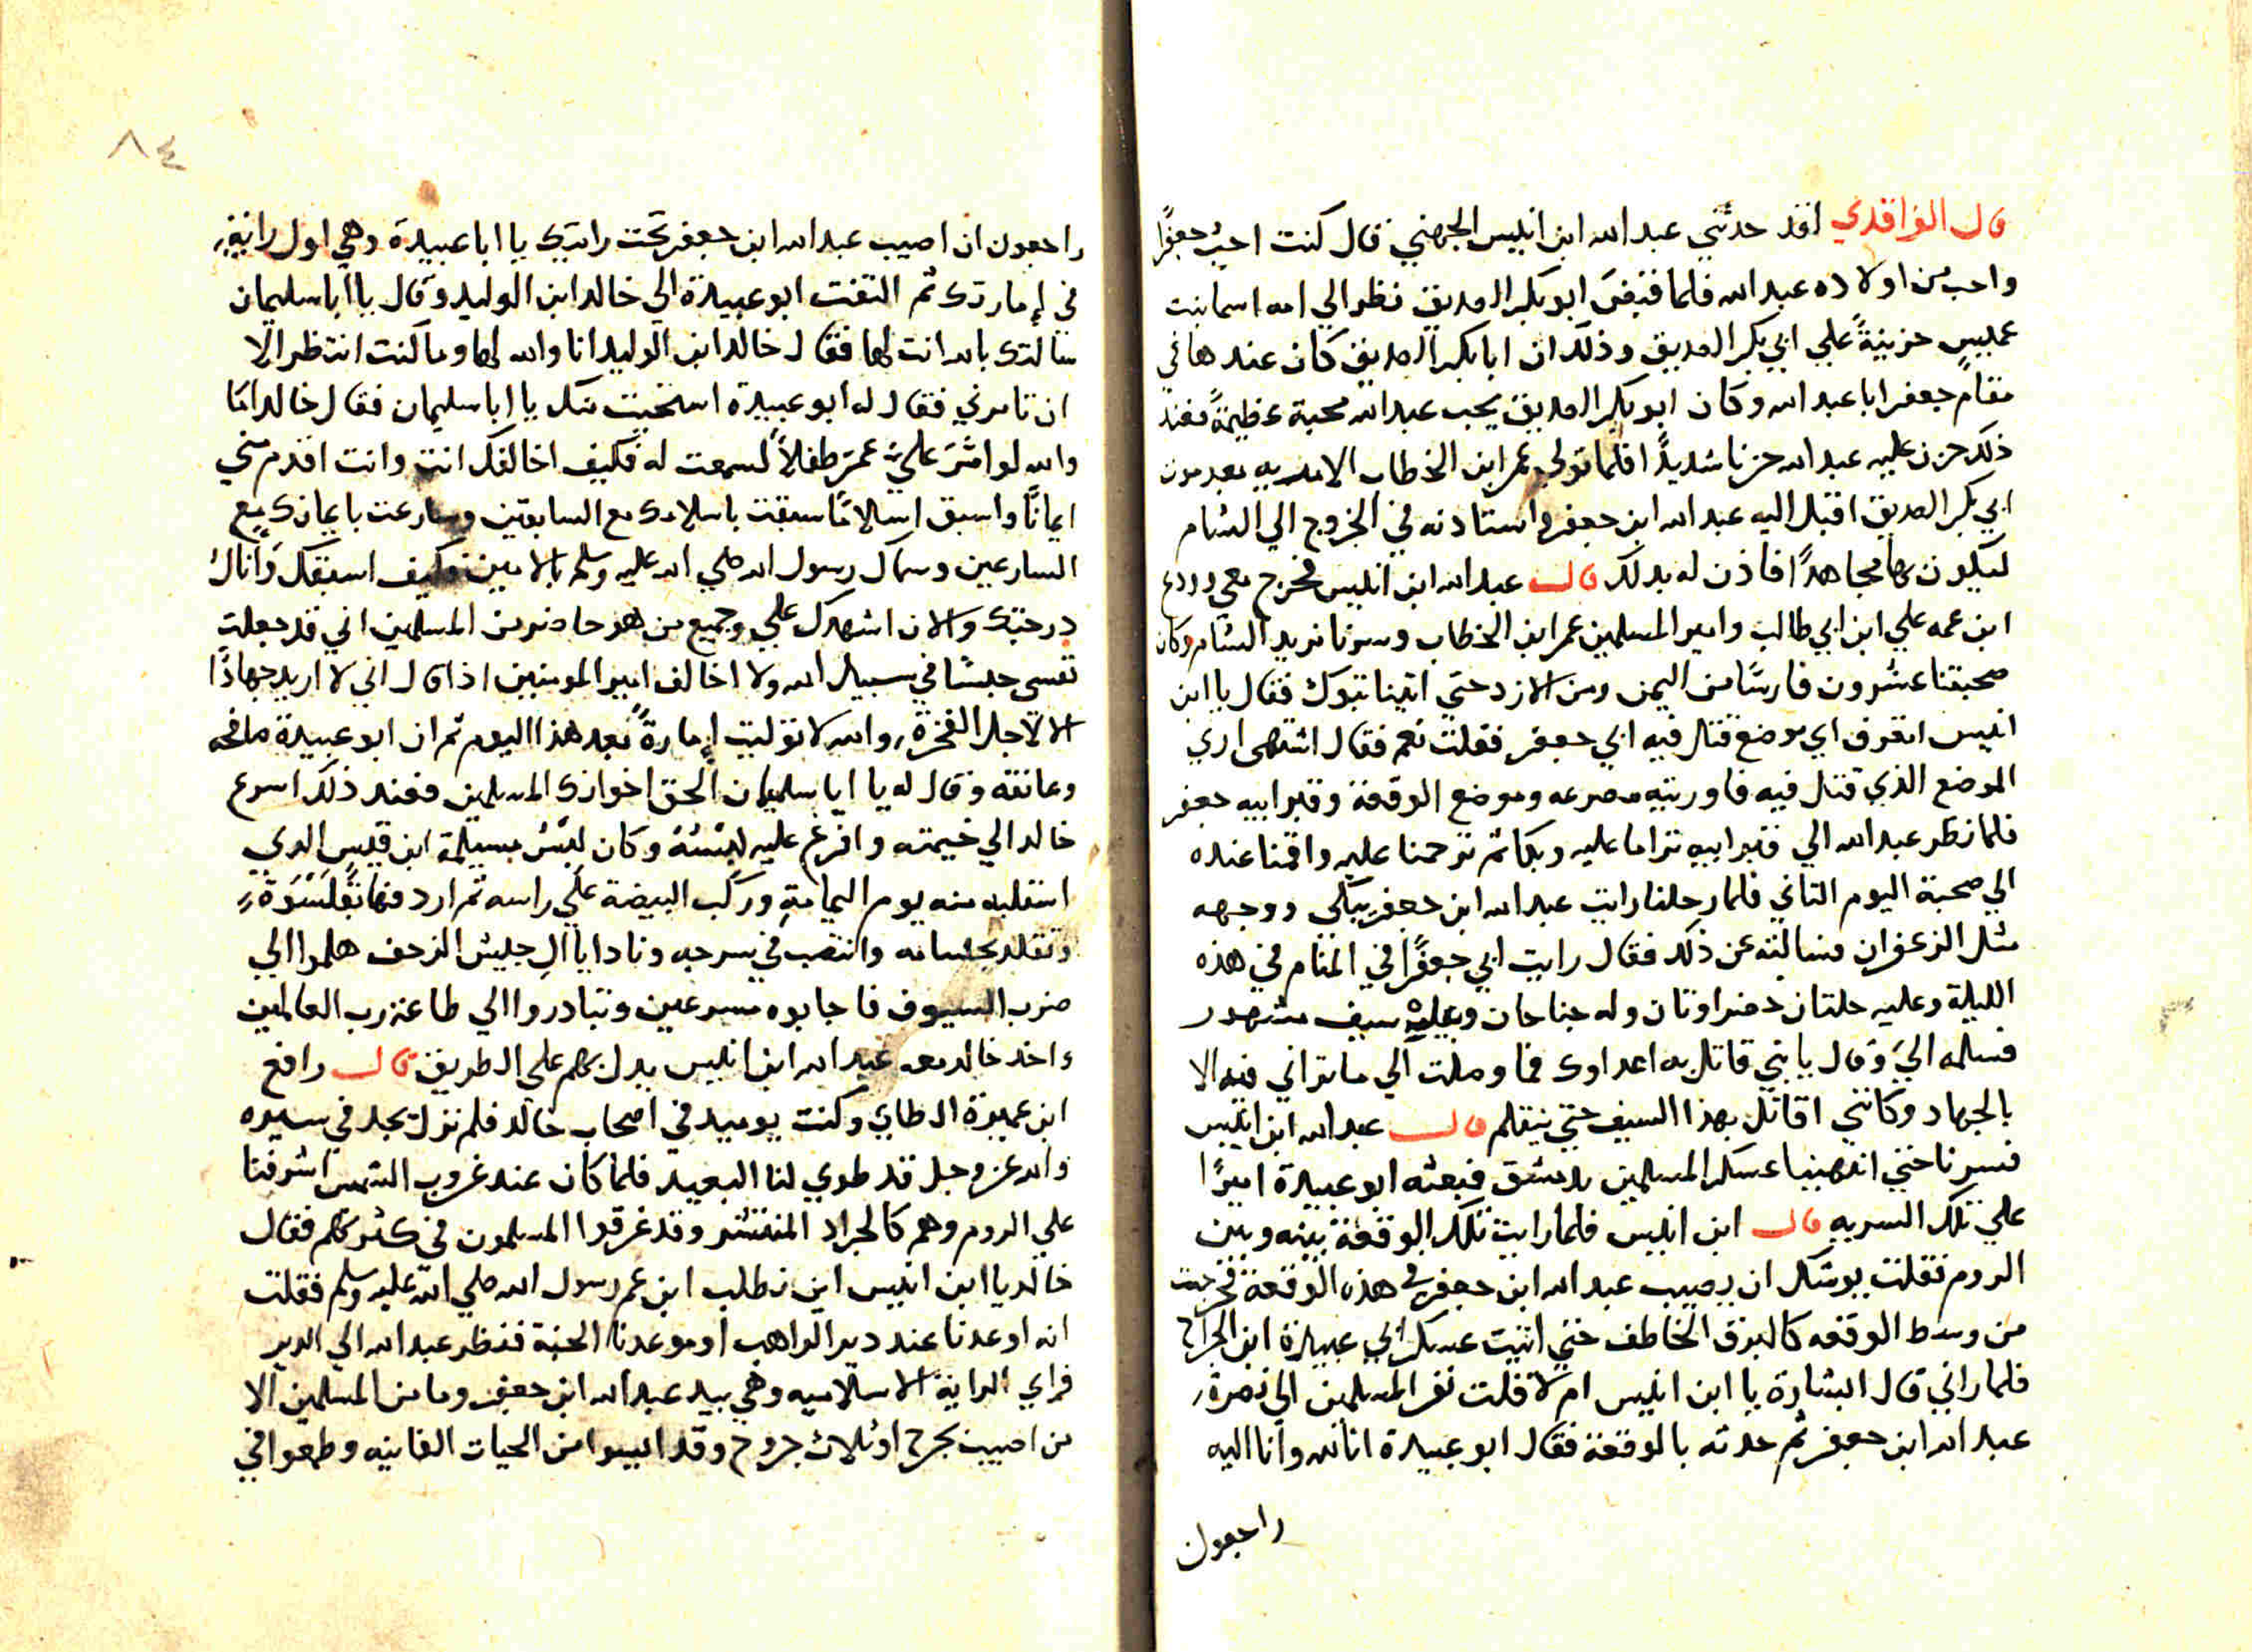 قال الواقدي لقد حدثني عبد الله ابن انيس الجهني قال كنت احب جعفرًا
واحب من اولاده عبد الله فلما قبض ابو بكر الصديق نظر الي امه اسما بنت
عميس حزينةً علي ابي بكر الصديق وذلك ان ابا بكر الصديق كان عندها في
مقام جعفر ابا عبد الله وكان ابو بكر الصديق يحب عبد الله محبة عظيمةً فعند
ذلك حزن عليه عبد الله حزنا شديدًا فلما تولي عمر ابن الخطاب الامر به بعد موت
ابي بكر الصديق اقبل اليه عبد الله ابن جعفر واستادنه في الخروج الي الشام
ليكون بها مجاهدًا فاذن له بدلك قال عبد الله ابن انيس فخرج معي وودع
ابن عمه علي ابن ابي طالب وامير المسلمين عمر ابن الخطاب وسرنا نريد الشام وكان
صحبتنا عشرون فارسًا من اليمن ومن الازد حتي اتينا تبوك فقال يا ابن
انيس اتعرف اي موضع قتل فيه ابي جعفر فقلت نعم فقال اشتهي اري
الموضع الذي قتل فيه فاوريته مصرعه وموضع الوقعة وقبر ابيه جعفر
فلما نظر عبد الله الي قبر ابيه تراما عليه وبكا ثم ترحمنا عليه واقمنا عنده
الي صحبة اليوم التاني فلما رحلنا رايت عبد الله ابن جعفر يبكي ووجهه
مثل الزعفران فسالته عن ذلك فقال رايت ابي جعفرًا في المنام في هذه
الليلة وعليه حلتان خضراوتان وله جناحان وبيده سيف مشهور
فسلمه اليَ وقال يا بني قاتل به اعداوك فما وصلت الي ما تراني فيه الا
بالجهاد وكانني اقاتل بهذا السيف حتي يتقلم قال عبد الله ابن انيس
فسرنا حتي انتهينا عسكر المسلمين بدمشق فبعثه ابو عبيدة اميرًا
علي تلك السريه قال ابن انيس فلما رايت تلك الوقعة بينه وبين
الروم فقلت يوشك ان يصيب عبد الله ابن جعفر في هذه الوقعة فخرجت
من وسط الوقعه كالبرق الخاطف حتي اتيت عسكر ابي عبيدة ابن الجراح
فلما راني قال البشارة يا ابن انيس ام لا قلت نفر المسلمين الي نصرة
عبد الله ابن جعفر ثم حدثه بالوقعة فقال ابو عبيدة انا لله وانا اليه
راجعون
٨٤
راجعون ان اصيب عبد الله ابن جعفر تحت رايتك يا ابا عبيدة وهي اول راية
في إمارتك ثم التفت ابو عبيدة الي خالد ابن الوليد وقال يا ابا سليمان
سالتك بالله انت لها فقال خالد ابن الوليد انا والله لها وما كنت انتظر الا
ان تامرني فقال له ابو عبيدة استحيت منك يا ابا سليمان فقال خالد امَا
والله لو امّرَ عليَّ عمرَ طفلاً لسمعت له فكيف اخالفك انت وانت اقدم مني
ايمانًا واسبق اسلامًا سبقت باسلامك مع السابقين وسارعت بايمانك مع
السارعين وسماك رسول الله صلي الله عليه وسلم بالامين فكيف اسبقك وانال
درجتك والان اشهدك علي وجميع من هو حاضر من المسلمين اني قد جعلت
نفسي حبسًا في سبيل الله ولا اخالف امير المومنين اذا قال اني لا اريد جهادًا
الا لاجل الفخرة والله لا توليت إمارةً بعد هذا اليوم ثم ان ابو عبيدة صافحه
وعانقه وقال له يا ابا سليمان الحق اخوانك المسلمين فعند ذلك اسرع
خالد الي خيمته وافرغ عليه لبْسَهُ وكان لبْسُ مسيلمة ابن قيس الدي
استلبه منه يوم اليمامةِ وركب البيضة علي راسه ثم اردفها بقلَنْسُوَةٍ
وتقلد بحسامه وانتصب في سرجه ونادا يا آل جيش الزحف هلموا الي
ضرب السيوف فاجابوه مسرعين وتبادروا الي طاعة رب العالمين
واخد خالد معه عبد الله ابن انيس يدل بهم علي الطريق قال رافع
ابن عميرة الطاي وكنت يوميد في اصحاب خالد فلم نزل نجد في سيره
والله عز وجل قد طوي لنا البعيد فلما كان عند غروب الشمس اشرفنا
علي الروم وهم كالجراد المنتشر وقد غرقوا المسلمون في كثرتهم فقال
خالد يا ابن انيس اين نطلب ابن عم رسول الله صلي الله عليه وسلم فقلت
انه اوعدنا عند دير الراهب او موعدنا الجنة فنظر عبد الله الي الدير
فراي الراية الاسلاميه وهي بيد عبد الله ابن جعفر وما من المسلمين الا
من اصيب بجرح او ثلاث جروح وقد ايسوا من الحيات الفانيه وطمعوا في